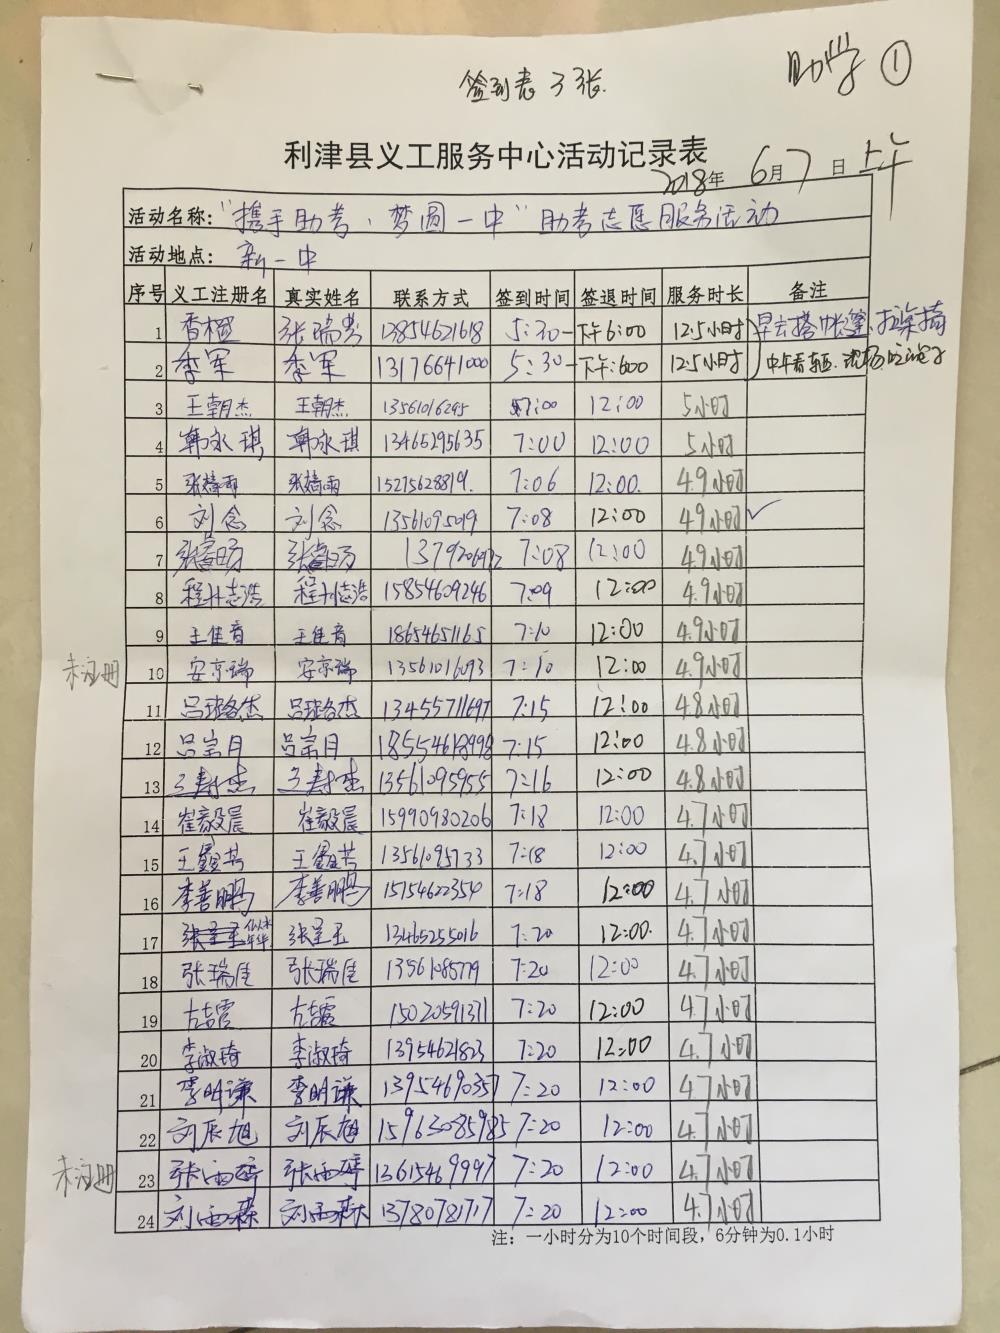 助学 ①
签到表 3张
利津县义工服务中心活动记录表
2018年 6月7日 上午
活动名称:"携手助考、梦圆一中"助考志愿服务活动
活动地点: 新一中
序号 义工注册名 真实姓名 联系方式 签到时间 签退时间 服务时长 备注
1 香橙 5:30 下午6:00 12.5小时 早去搭帐篷、拉桌椅
2 李军 李军 13176641000 5:30 下午:6:00 12.5小时 中午看东西
3 王朝杰 王朝杰 13561016295 7:00 12:00 5小时
4 韩永琪 韩永琪 13465295635 7:00 12:00 5小时
5 15275628819. 7:06 12:00. 4.9小时
6 刘念 刘念 13561095019 7:08 12:00 4.9小时
7 7:08 12:00 4.9小时
8 15854609246 7:09 12:00 4.9小时
9 王佳音 王佳音 18654651165 7:10 12:00 4.9小时
未注册 10 安京瑞 安京瑞 13561016093 7:10 12:00 4.9小时
11 13455711697 7:15 12:00 4.8小时
12 吕宗月 吕宗月 18554618998 7:15 12:00 4.8小时
13 王寿杰 王寿杰 13561095955 7:16 12:00 4.8小时
14 崔毅晨 崔毅晨 15990980206 7:18 12:00 4.7小时
15 7:18 12:00 4.7小时
16 李善鹏 李善鹏 15754622354 7:18 12:00 4.7小时
17 似水年华 13465255016 7:20 12:00. 4.7小时
18 张瑞佳 张瑞佳 7:20 12:00 4.7小时
19 15020591371 7:20 12:00 4.7小时
20 李淑琦 李淑琦 13954621823 7:20 12:00 4.7小时
21 李明谦 李明谦 13954690357 7:20 12:00 4.7小时
22 刘辰旭 刘辰旭 15963085985 7:20 12:00 4.7小时
未注册 23 张雨婷 张雨婷 13615469997 7:20 12:00 4.7小时
24 刘雨森 刘雨森 13780781717 7:20 12:00 4.7小时
注: 一小时分为10个时间段，6分钟为0.1小时